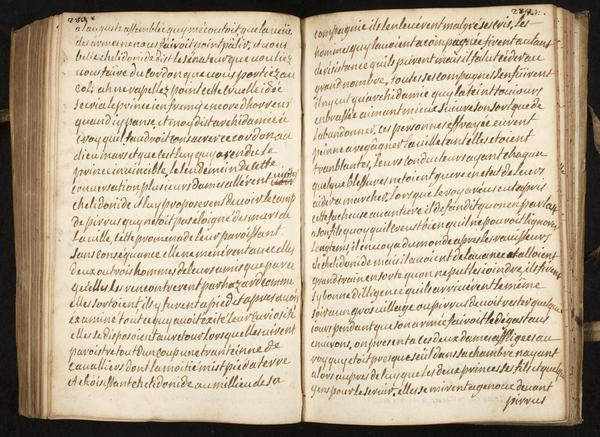 a l'auguste assemblée quy m'ecoutoit que la veüe
des armes ne nous faisoit point pâlir, et vous
belle chelidonide dist le sénateur que vouliez
vous faire du cordon que vous portiez au
col, ah ne rapellez point cette cruelle idée
seria le prince j'en fremis encore d'horreur
quand j'y panse et moy dist archidamie je
croy qu'il faudroit consacrer ce cordon au
dieu mars et que c'est luy quy a rendu le
prince invincible, le lendemain de cette
conversation plusieurs dames allerent
chelidonide et luy proposerent de voir le camp
de pirrus quy n'etoit pas éloigné des murs de
la ville, cette promenade leur paroissant
sans conséquance elle ne menérent avec elles
deux ou trois hommes de leurs amis que parce
qu'elles les rencontrerent par hazard comme
elles sortoient, ils y furent a pied et apres avoir
examiné tout ce quy avoit exité leur curiosité
elles se disposoient au retour lorsqu'elles virent
paroistre tout d'un coup une tranteinne de
cavalliers dont la moitié mist pied a terre
et choisissant chelidonide au millieu de sa
compagnie ils l'enleverent malgré ses cris, les
hommes quy l'avoient accompagnée firent autant
de résistance qu'ils purent mais il falut céder au
grand nombre, toutes ses compagnes s'enfuirent
il n'y eut qu'archidamie quy la tint toujours
embrassée aimant mieux suivre son sort que de
l'abandonner, ces personnes effrayée eurent
peinne a regagner la ville tant elles etoient
tramblantes, leurs conducteurs ayant chaqun
quelque blessures n'etoient guere en etat de leurs
aider a marcher, lorsque le roy areus eut apris
cette facheuse avanture il défandit qu'on en parla
a son fils quoy qu'il creust bien qu'il ne pouroit l'ignorer
longtems il envoya du monde apres les ravisseurs
de chelidonide mais il avoient de l'avance et alloient
grand train en sorte qu'on ne put les joindre, ils firent
sy bonne diligence qu'ils arriverent le même
soir a un gros village ou pirrus devoit rester quelque
jours pendant que son armée faisoit le dégast aux
environs, on presenta ces deux dames affligées au
roy quy etoit presque seul dans sa chambre n'ayant
alors aupres de luy que les deux princes ses fils et quelque
gens pour le servir, elles se mirent a genoux devant
pirrus